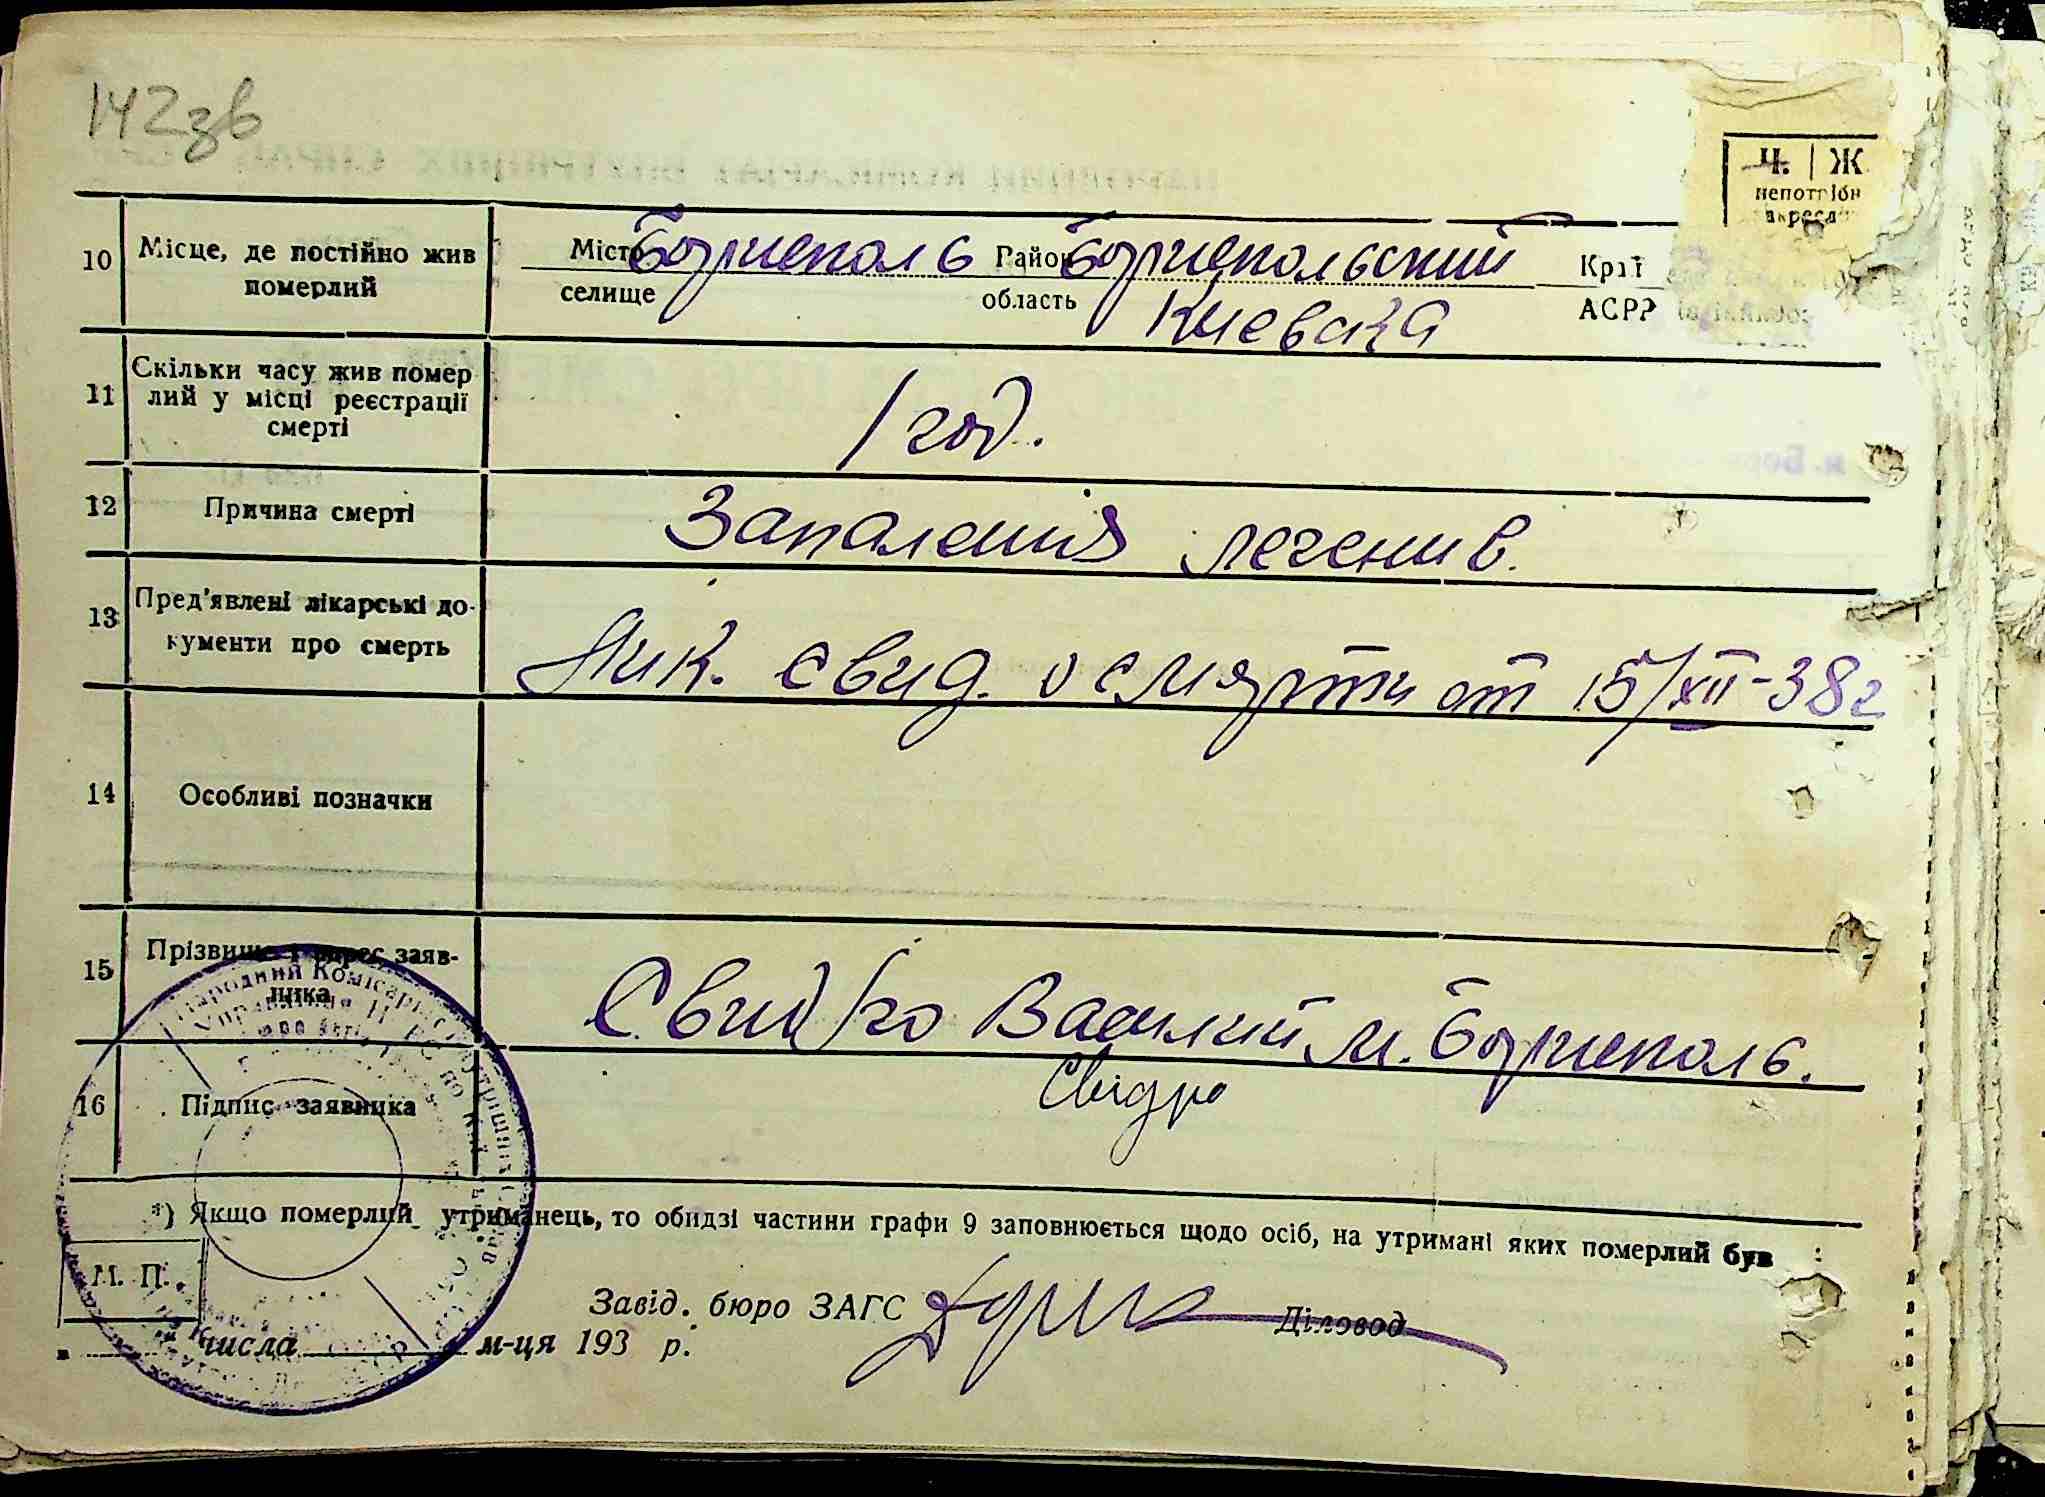 142зв
Ч. | Ж
непотрібн
10 Місце, де постійно жив померлий
Місто Борисполь Район Бориспольский Край
селище область Киевска АСРР
11 Скільки часу жив помер
лий у місці реєстрації
смерті
1 год.
12 Причина смерті Запаления легенив.
13 Пред'явлені лікарські до-
кументи про смерть
Лик. свид. о смярти от 15/XII-38г
14 Особливі позначки
15 Прізвище і адрес заяв-
ника
Свидро Василий м. Борисполь.
16 Підпис заявника Свідро
*) Якщо померлий утриманець, то обидві частини графи 9 заповнюється щодо осіб, на утримані яких померлий був
М. П.
Завід. бюро ЗАГС Діловод
числа м-ця 193 р.